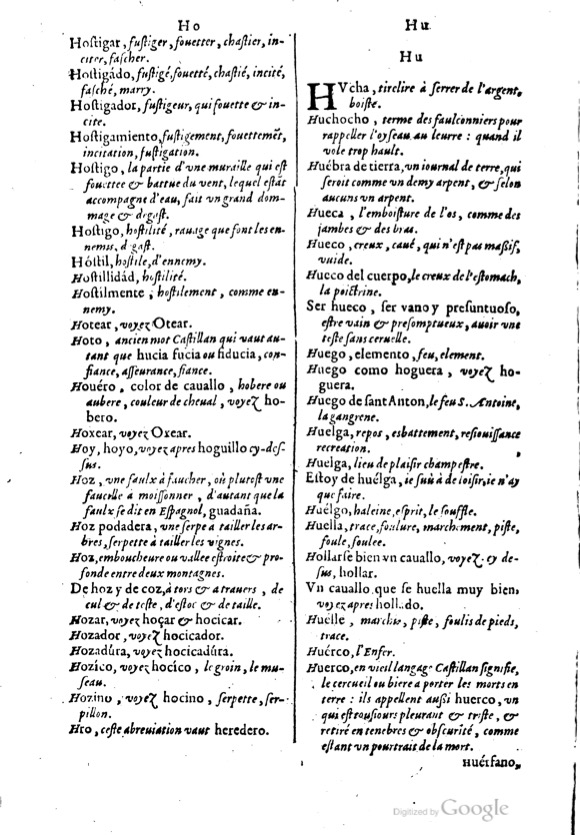 Ho
Hostigar, fustiger, fouetter, chastier, in-
citer, fascher.
Hostigádo, fustigé, fouetté, chastié, incité,
fasché, marry.
Hostigador, fustigeur, qui fouette & in-
cite.
Hostigamiento, fustigement, fouettemẽt,
incitation, fustigation.
Hostigo, la partie d'vne muraille qui est
fouettee & battue du vent, lequel estãt
accompagne d'eau, fait vn grand dom-
mage & degast.
Hostigo, hostilité, rauage que font les en-
nemis, degast.
Hóstil, hostile, d'ennemy.
Hostillidád, hostilité.
Hostilmente, hostilement, comme en-
nemy.
Hotear, voyez Otear.
Hoto, ancien mot Castillan qui vaut au-
tant que hucia fucia ou fiducia, con-
fiance, asseurance, fiance.
Houéro, color de cauallo, hobere ou
aubere, couleur de cheual, voyez ho-
bero.
Hoxear, voyez Oxear.
Hoy, hoyo, voyez apres hoguillo cy-des-
sus.
Hoz, vne faulx à faucher, où plutost vne
faucelle a moissonner, d'autant que la
faulx se dit en Espagnol, guadaña.
Hoz podadera, vne serpe a tailler les ar-
bres, serpette à tailler les vignes.
Hoz, emboucheure ou vallee estroite & pro-
fonde entre deux montagnes.
De hoz y de coz, à tors & a trauers, de
cul & de teste, d'estoc & de taille.
Hozar, voyez hoçar & hocicar.
Hozador, voyez hocicador.
Hozadúra, voyez hocicadúra.
Hozíco, voyez hocíco, le groin, le mu-
seau.
Hozino, voyez hocino, serpette, ser-
pillon.
Hro, ceste abreuiation vaut heredero.
Hu
Hu
HVcha, tirelire à serrer de l'argent,
boiste.
Huchocho, terme des faulconniers pour
rappeller l'oyseau au leurre : quand il
vole trop hault.
Huébra de tierra, vn iournal de terre, qui
seroit comme vn demy arpent, & selon
aucuns vn arpent.
Hueca, l'emboisture de l'os, comme des
jambes & des bras.
Hueco, creux, caué, qui n'est pas massif,
vuide.
Hueco del cuerpo, le creux de l'estomach,
la poictrine.
Ser hueco, ser vano y presuntuoso,
estre vain & presomptueux, auoir vne
teste sans ceruelle.
Huego, elemento, feu, element.
Huego como hoguera, voyez ho-
guera.
Huego de sant Anton, le feu S. Antoine,
la gangrene.
Huelga, repos, esbattement, resiouissance
recreation.
Huelga, lieu de plaisir champestre.
Estoy de huélga, ie suis à de loisir, ie n'ay
que faire.
Huélgo, haleine, esprit, le souffle.
Huella, trace, foulure, marchement, piste,
foule, foulee.
Hollarse bien vn cauallo, voyez cy de-
sus, hollar.
Vn cauallo que se huella muy bien,
voyez apres hollado.
Huelle, marche, piste, foulis de pieds,
trace.
Huérco, l'Enfer.
Huerco, en vieil langage Castillan signifie,
le cercueil ou biere a porter les morts en
terre : ils appellent aussi huerco, vn
qui est tousiours pleurant & triste, &
retiré en tenebres & obscurité, comme
estant vn pourtrait de la mort.
Huérfano,
Digitized by Google